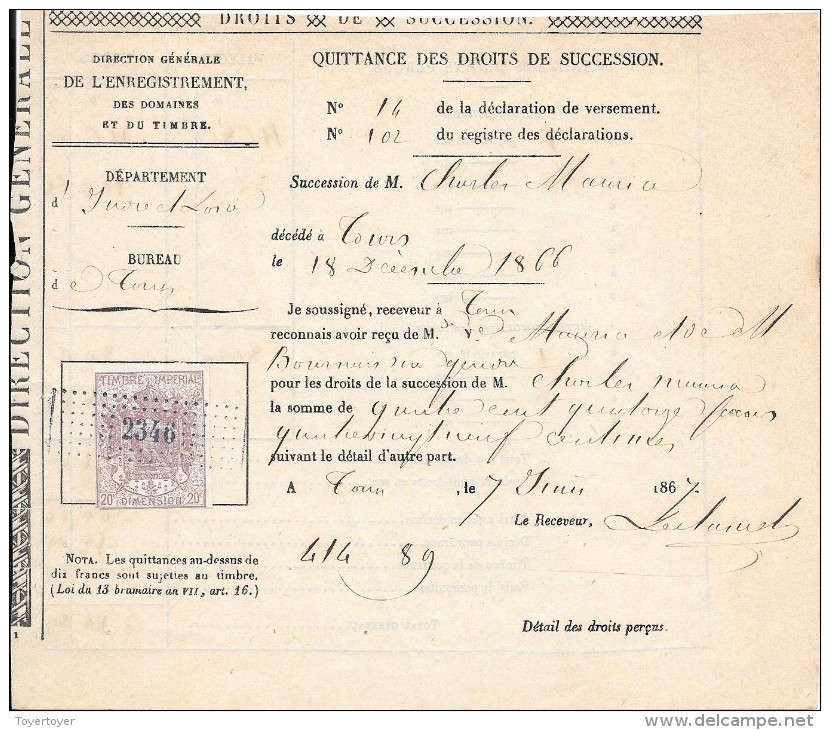 DROITS DE SUCCESSION.
DIRECTION GÉNÉRALE
DIRECTION GÉNÉRALE
DE L'ENREGISTREMENT,
DES DOMAINES
ET DU TIMBRE.
DÉPARTEMENT
d' Indre et Loire
BUREAU
d e Tours
QUITTANCE DES DROITS DE SUCCESSION.
N° 14 de la déclaration de versement.
N° 102 du registre des déclarations.
Succession de M. Charles Maurice
décédé à Tours
le 18 Décembre 1866
Je soussigné, receveur à Tours
reconnais avoir reçu de M. Maurice et de M
gendre
pour les droits de la succession de M. Charles Maurice
la somme de quatre cent quatorze francs
quatrevingt neuf centimes
suivant le détail d'autre part.
A Tours, le 7 Juin 1867.
Le Receveur,
414 89
Détail des droits perçus.
TIMBRE IMPÉRIAL
2346
20c DIMENSION 20c
NOTA. Les quittances au-dessus de
dix francs sont sujettes au timbre.
(Loi du 13 brumaire an VII, art. 16.)
1
TOTAL GÉNÉRAL
Toyertoyer
delcampe.net